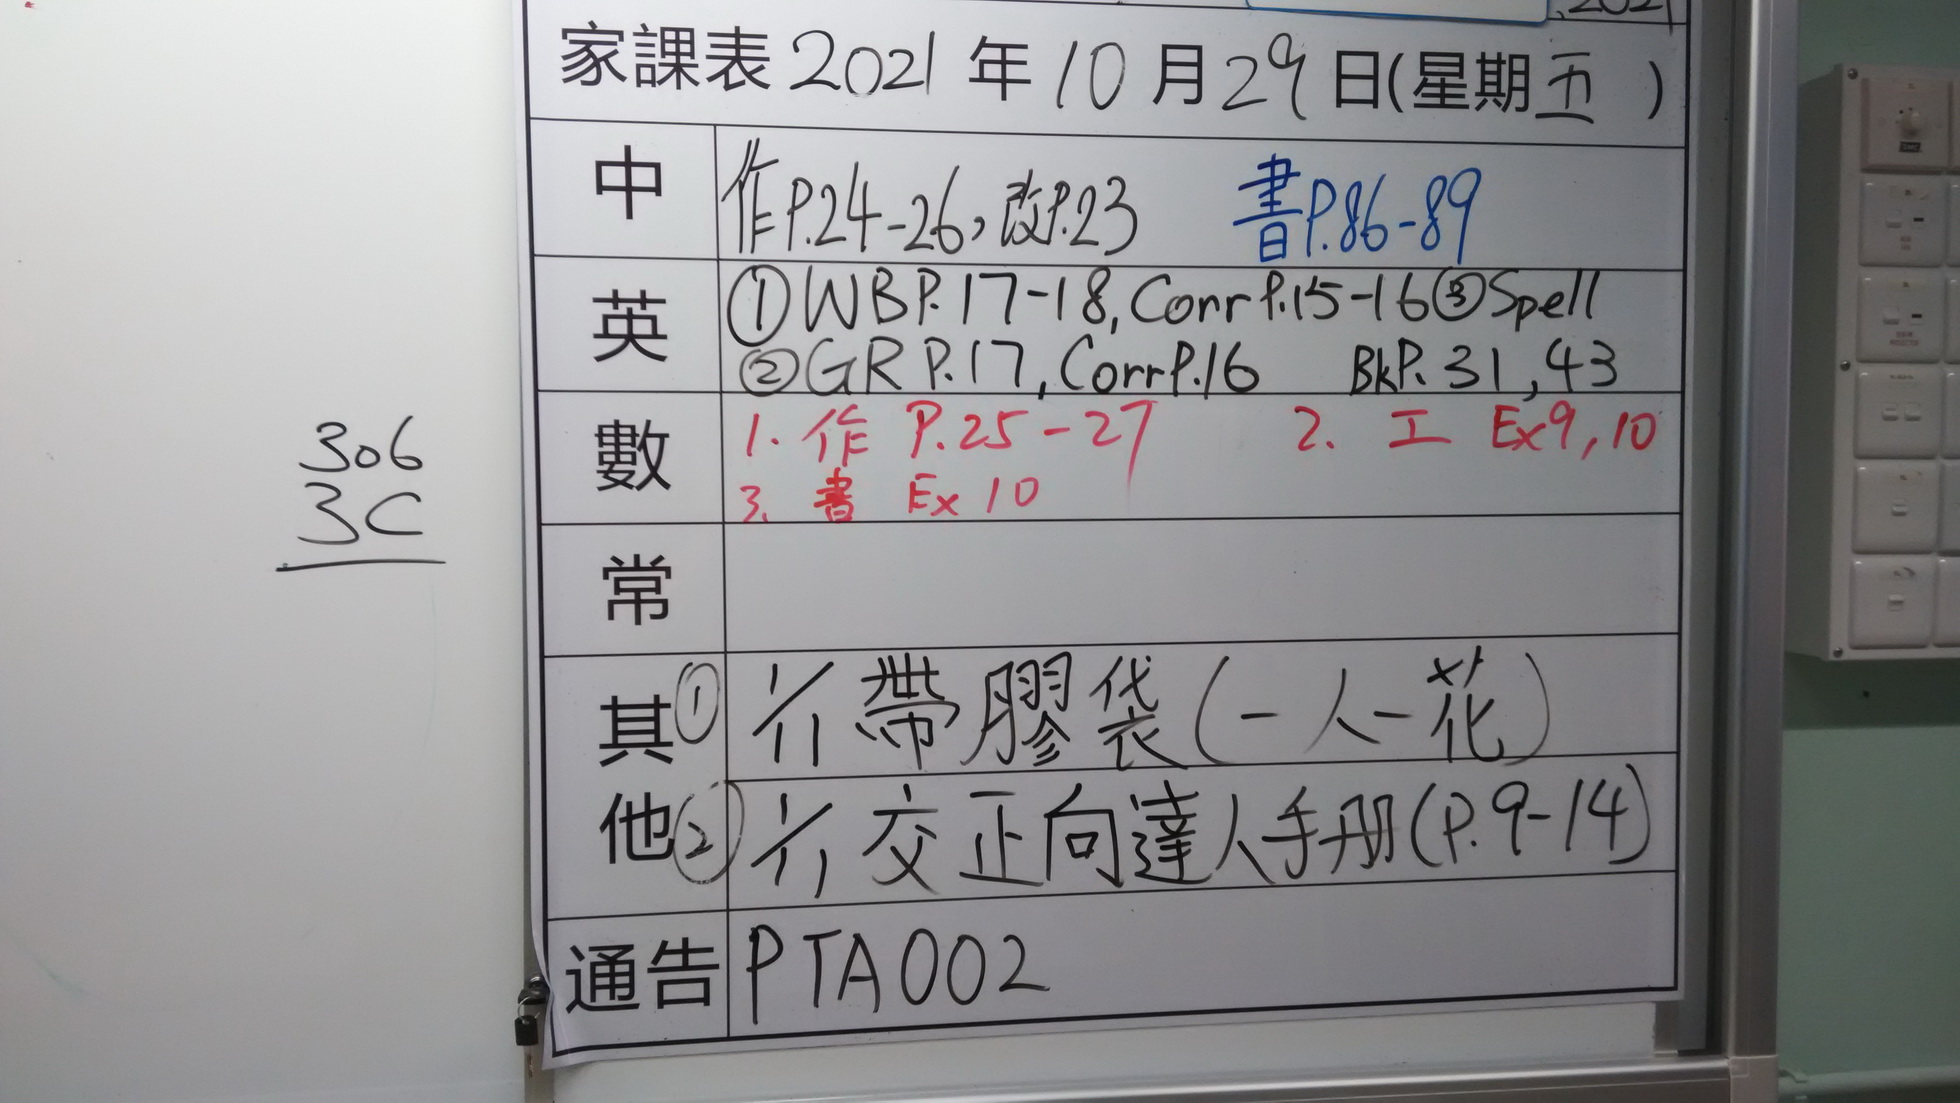 家課表 2021 年 10 月 29 日(星期五 )
中 作P.24-26,改P.23 書P.86-89
英 ①WB P.17-18, Corr P.15-16 ③Spell
②GR P.17, Corr P.16 Bk P. 31, 43
數 1. 作 P.25-27 2. 工 Ex9, 10
3. 書 Ex 10
常
其他
① 1/11 帶膠袋(一人一花)
② 1/11 交正向達人手册(P.9-14)
通告 PTA002
306
3C